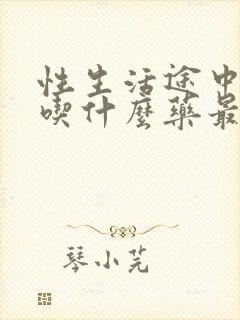 性生活途中
喫什麼藥最
琴小芫